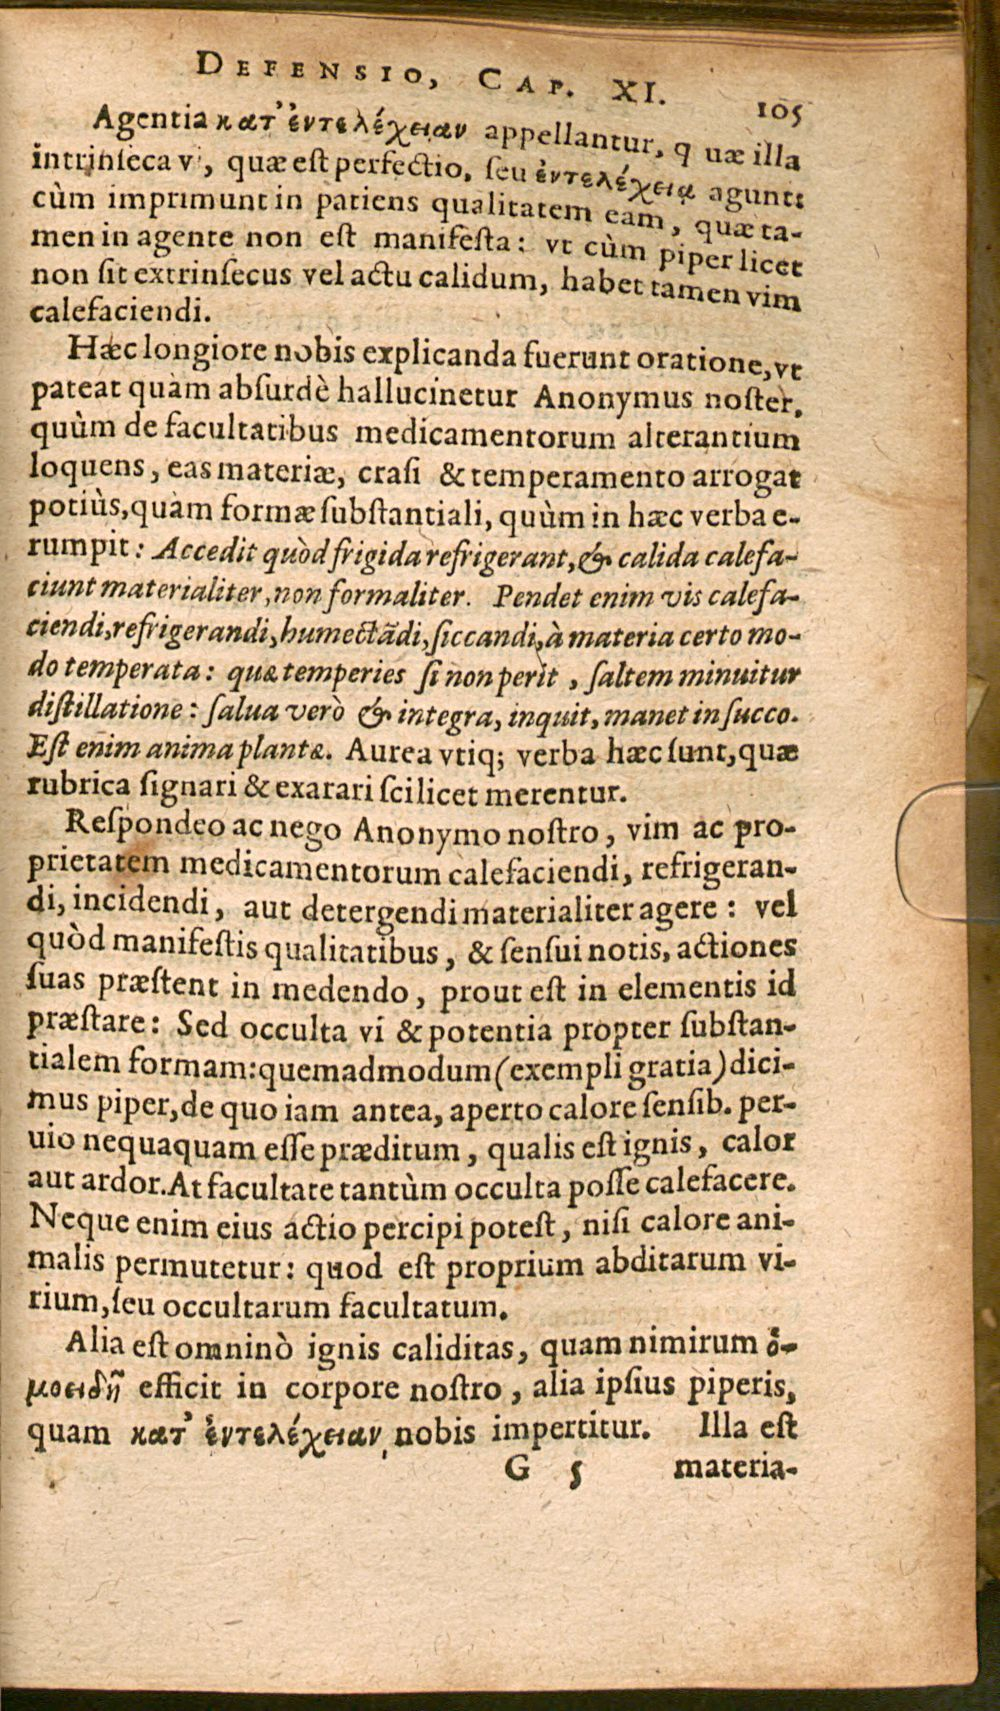 DEFENSIO, CAP. XI. 105
Agentia κατ' ἐντελέχειαν appellantur, q uæ illa
intrinſeca vi, quæ eſt perfectio, ſeu ἐντελέχεια agunt:
cùm imprimunt in patiens qualitatem eam, quæ ta-
men in agente non eſt manifeſta: vt cùm piper licet
non ſit extrinſecus vel actu calidum, habet tamen vim
calefaciendi.
Hæc longiore nobis explicanda fuerunt oratione, vt
pateat quàm abſurdè hallucinetur Anonymus noſter,
quùm de facultatibus medicamentorum alterantium
loquens, eas materiæ, craſi & temperamento arrogat
potiùs, quàm formæ ſubſtantiali, quùm in hæc verba e-
rumpit: Accedit quòd frigida refrigerant, & calida calefa-
ciunt materialiter, non formaliter. Pendet enim vis calefa-
ciendi, refrigerandi, humectādi, ſiccandi, à materia certo mo-
do temperata: quæ temperies ſi non perit, ſaltem minuitur
diſtillatione: ſalua verò & integra, inquit, manet in ſucco.
Eſt enim anima plantæ. Aurea vtiq; verba hæc ſunt, quæ
rubrica ſignari & exarari ſcilicet merentur.
Reſpondeo ac nego Anonymo noſtro, vim ac pro-
prietatem medicamentorum calefaciendi, refrigeran-
di, incidendi, aut detergendi materialiter agere: vel
quòd manifeſtis qualitatibus, & ſenſui notis, actiones
ſuas præſtent in medendo, prout eſt in elementis id
præſtare: Sed occulta vi & potentia propter ſubſtan-
tialem formam: quemadmodum (exempli gratia) dici-
mus piper, de quo iam antea, aperto calore ſenſib. per-
uio nequaquam eſſe præditum, qualis eſt ignis, calor
aut ardor. At facultate tantùm occulta poſſe calefacere.
Neque enim eius actio percipi poteſt, niſi calore ani-
malis permutetur: quod eſt proprium abditarum vi-
rium, ſeu occultarum facultatum.
Alia eſt omninò ignis caliditas, quam nimirum ὁ-
μοειδῆ efficit in corpore noſtro, alia ipſius piperis,
quam κατ' ἐντελέχειαν nobis impertitur. Illa eſt
G 5 materia-